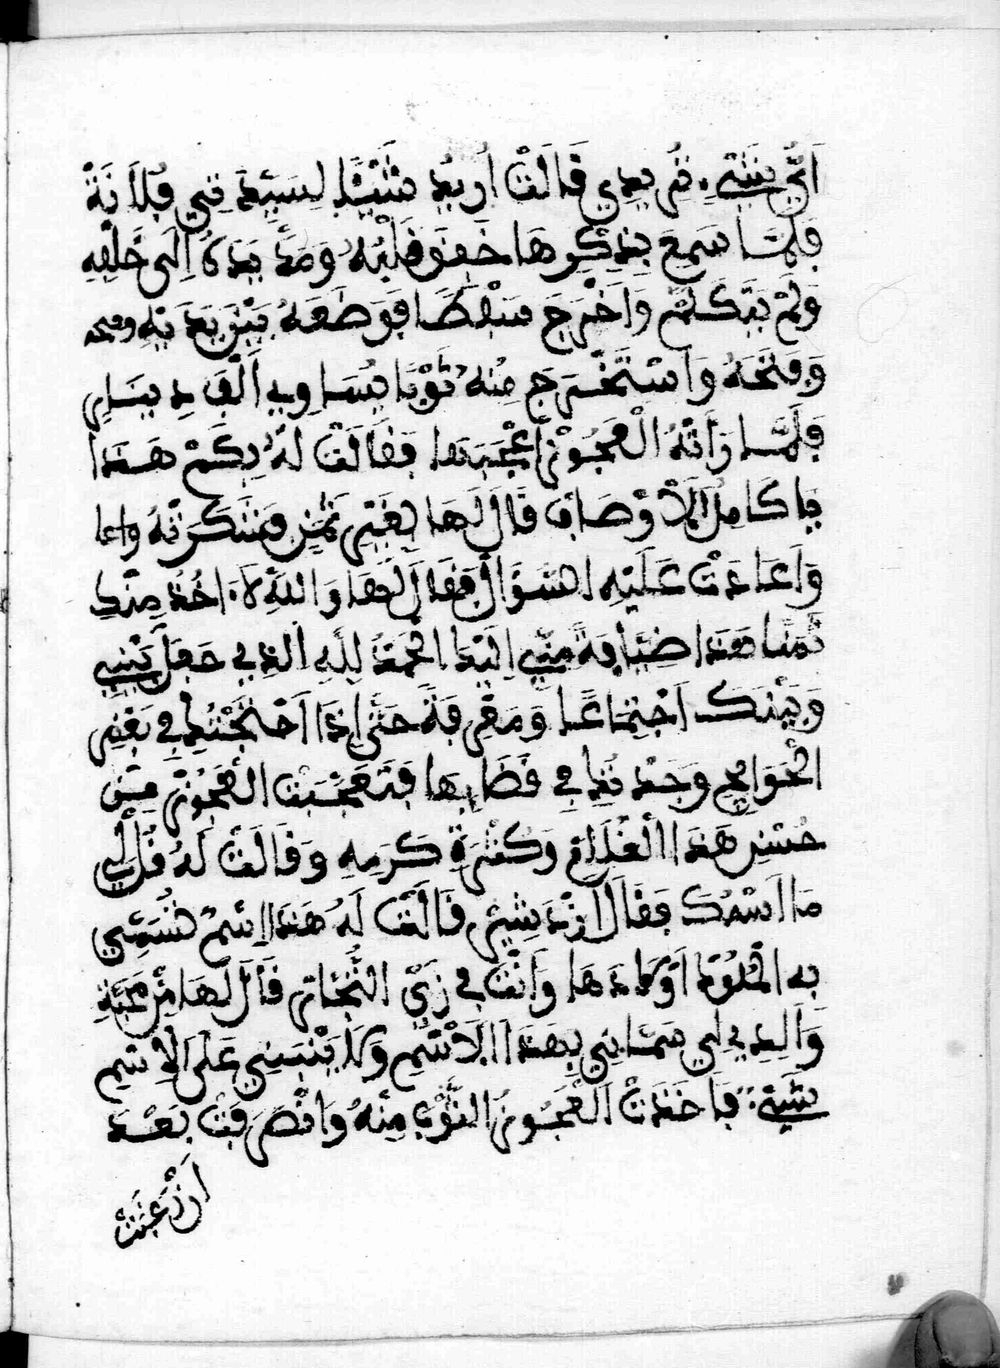 أي شيء تريدي قالت اريد شيئا لسيدتي فلانة
فلما سمع بذكرها خفق قلبه ومد يده الى خلفه
ولم يتكلم واخرج سفطا فوضعه بين يديه وفتحه
وفتحه واستخرج منه ثوبا يساوي ألف دينار
فلما رأته العجوز أعجبها فقالت له بكم هذا
يا كامل الاوصاف قال لها بغير ثمن فشكرته واعا
واعادت عليه السؤال فقال لها والله لا اخذ منك
ثمنا هذا ضيافة مني اليك الحمد لله الذي جعل بيني
وبينك اجتماعا ومعرفة حتى إذا احتجتك في بعض
الحوايج وجدتك في قضايها فتعجبت العجوز من
حسن هذا الغلام وكثرة كرمه وقالت له قل لي
ما اسمك فقال ازدشير قالت له هذا اسم تسمي
به الملوك اولادها وانت في زي التجار قال لها من محبة
والدي لي سماني بهذا الاسم ولا ينبني على الاسم
شيء فاخذت العجوز الثوب منه وانصرفت بعد